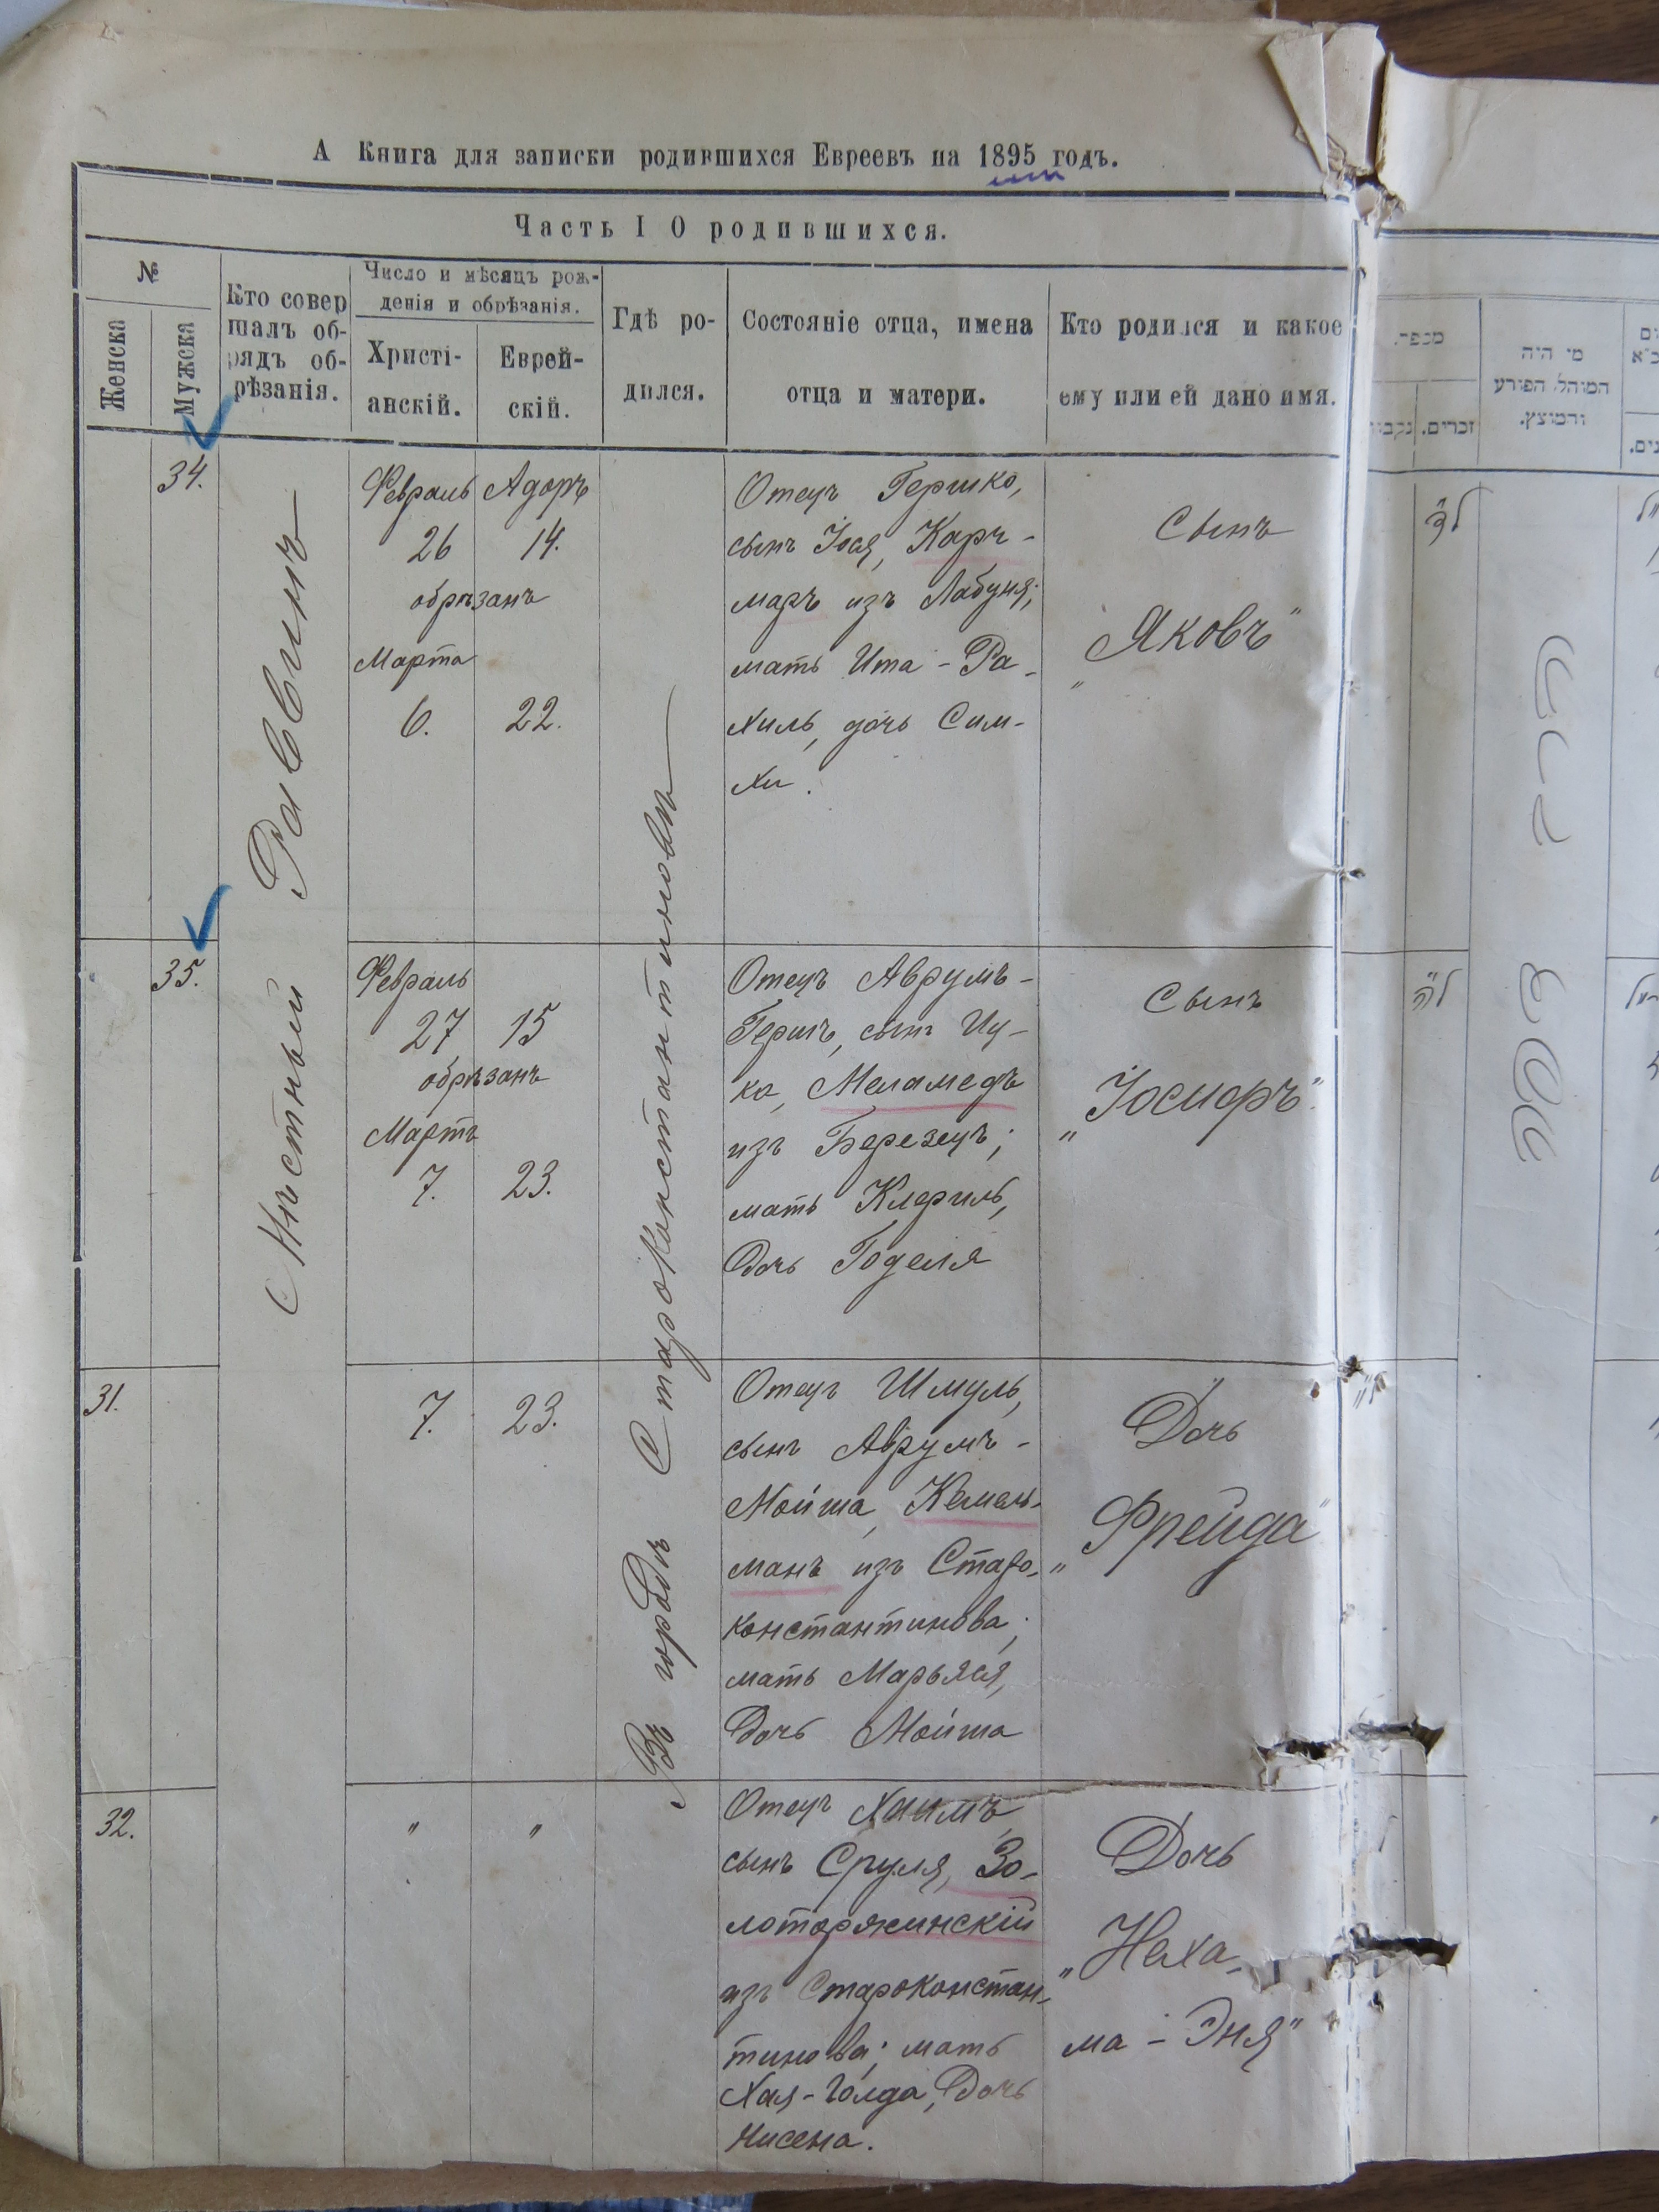 А Книга для записки родившихся Евреевъ на 1895 годъ.
Часть I О родившихся.
№
Женска
Мужска
Кто совер
шалъ об-
рядъ об-
рѣзанія.
Число и мѣсяцъ рож-
денія и обрѣзанія.
Христі-
анскій.
Еврей-
скій.
Гдѣ ро-
дился.
Состояніе отца, имена
отца и матери.
Кто родился и какое
ему или ей дано имя.
Мѣстный Раввинъ
Въ городѣ Староконстантиновѣ
34.
Февраль Адоръ
26 14.
обрѣзанъ
Марта
6. 22.
Отецъ Гершко,
сынъ Іося, Карч-
маръ изъ Лабуня;
мать Ита-Ра-
хиль, дочь Сим-
хи.
Сынъ
„Яковъ"
35.
Февраль
27 15
обрѣзанъ
Мартъ
7. 23.
Отецъ Аврумъ-
Гершъ, сынъ Иц-
ка, Меламедъ
изъ Березецъ;
мать
Дочь Годеля
Сынъ
„Іосифъ".
31.
7. 23.
Отецъ Шмуль,
сынъ Аврумъ-
Мойша, Кемель-
манъ изъ Старо-
константинова;
мать Марьяся,
Дочь Мойша
Дочь
„Фрейда"
32.
" "
Отецъ Хаимъ,
сынъ Сруля, Зо-
лоторжинскій
изъ Староконстан-
тинова; мать
Хая-Голда, Дочь
Нисена.
Дочь
„Неха-
ма-Эня"
מספר.
זכרים.
מי היה
המוהל הפורע
והמוצץ.
ל"ד
ל"ה